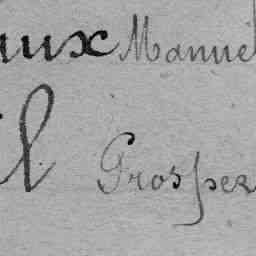 aux Manuel
il Prosper